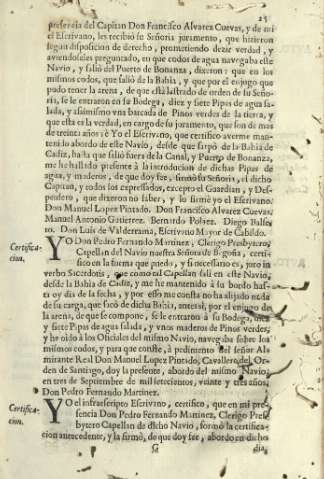 25
presencia del Capitan Don Francisco Alvarez Cuevas, y de mi
el Escrivano, les recibiò su Señoria juramento, que hizieron
segun disposicion de derecho, prometiendo dezir verdad, y
aviendoseles preguntado, en que codos de agua navegaba este
Navio, y saliò del Puerto de Bonanza, dixeron: que en los
mismos codos, que saliò de la Bahia, y que por el enjugo que
pudo tener la arena, de que està lastrado de orden de su Seño-
ria, se le entraron en su Bodega, diez y siete Pipas de agua sa-
lada, y assimismo una barcada de Pinos verdes de la tierra, y
que esta es la verdad, en cargo de su juramento, que son de mas
de treinta años: è Yo el Escrivano, que certifico averme man-
tenido abordo de este Navio, desde que sarpò de la Bahia de
Cadiz, hasta que saliò fuera de la Canal, y Puerto de Bonanza,
me he hallado presente à la introducion de dichas Pipas de
agua, y maderos, de que doy fee, firmò su Señoria, el dicho
Capitan, y todos los expressados, excepto el Guardian, y Des-
pensero, que dixeron no saber, y lo firmè yo el Escrivano.
Don Manuel Lopez Pintado. Don Francisco Alvarez Cuevas.
Manuel Antonio Gutierrez. Bernardo Polaez. Diego Balles-
tero. Don Luis de Valderrama, Escrivano Mayor de Cabildo.
Certifica-
cion.
YO Don Pedro Fernando Martinez, Clerigo Presbytero,
Capellan del Navio nuestra Señora de Begoña, certi-
fico en la fuerza que puedo, y si necessario es, juro in
verbo Sacerdotis, que como tal Capellan salì en este Navio,
desde la Bahia de Cadiz, y me he mantenido à su bordo has-
ta oy dia de la fecha, y por esso me consta no ha alijado nada
de su carga, que sacò de dicha Bahia, antes si, por el enjugo de
la arena, de que se compone, se le entraron à su Bodega, diez
y siete Pipas de agua salada, y unos maderos de Pinos verdes,
y he oido à los Oficiales del mismo Navio, navegaba sobre los
mismos codos, y para que conste, à pedimento del señor Al-
mirante Real Don Manuel Lopez Pintado, Cavallero del Or-
den de Santiago, doy la presente, abordo del mismo Navio,
en tres de Septiembre de mil setecientos, veinte y tres años.
Don Pedro Fernando Martinez.
Certifica-
cion.
YO el infraescripto Escrivano, certifico, que en mi pre-
sencia Don Pedro Fernando Martinez, Clerigo Pres-
bytero Capellan de dicho Navio, formò la certifica-
cion antecedente, y la firmò, de que doy fee, abordo en dicho
dia,